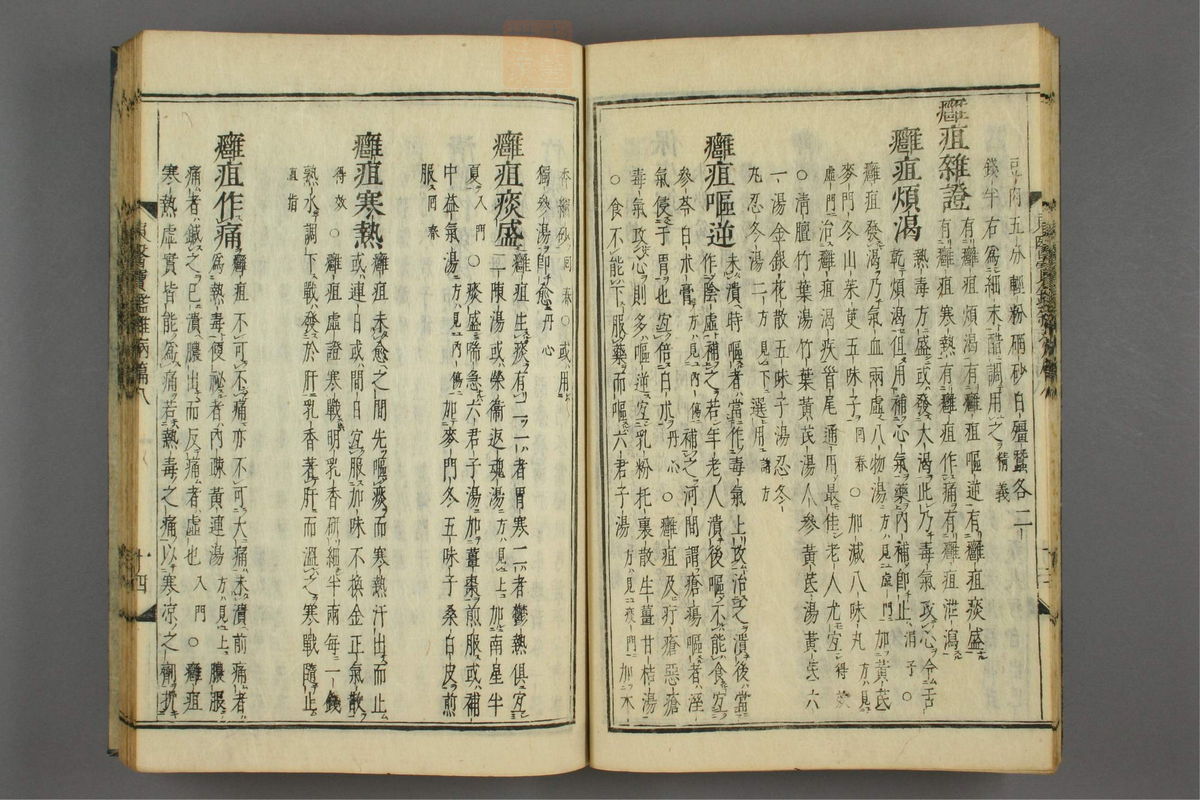 豆肉五分輕粉硇砂白殭蠶各二
錢半右爲細末醋調用之精義
癰疽雜證
有癰疽煩渴有癰疽嘔逆有癰疽痰盛
有癰疽寒熱有癰疽作痛有癰疽泄瀉
癰疽煩渴
熱毒方盛或發大渴此乃毒氣攻心令舌
乾煩渴但用補心氣藥內補卽止涓子○
癰疽發渴乃氣血兩虛八物湯方見虛門加黃芪
麥門冬山茱萸五味子回春○加減八味丸方見
虛門治癰疽渴疾首尾通用最佳老人尤宜得效
○清膻竹葉湯竹葉黃芪湯人參黃芪湯黃芪六
一湯金銀花散五味子湯忍冬
丸忍冬湯二方見下選用諸方
癰疽嘔逆
未潰時嘔者當作毒氣上攻治之潰後當
作陰虛補之若年老人潰後嘔不能食宜
參芩白朮膏方見內傷補之河間謂瘡瘍嘔者濕
氣侵于胃也宜倍白朮丹心○癰疽及疔瘡惡瘡
毒氣攻心則多嘔逆宜乳粉托裏散生薑甘桔湯
○食不能下服藥而嘔六君子湯方見痰門加木
香縮砂回春○或用
獨參湯卽愈丹心
癰疽痰盛
癰疽生痰有二一者胃寒二者鬱熱俱宜
二陳湯或榮衛返魂湯方見上加南星半
夏入門○痰盛喘急六君子湯加薑棗煎服或補
中益氣湯方見內傷加麥門冬五味子桑白皮煎
服回春
癰疽寒熱
癰疽未愈之間先嘔痰而寒熱汗出而止
或連日或間日宜服加味不換金正氣散
得效○癰疽虛證寒戰明乳香硏細半兩每一錢
熱水調下戰發於肝乳香蓍肝而溫之寒戰隨止
直指
癰疽作痛
癰疽不可不痛亦不可大痛未潰前痛者
爲熱毒便祕者內踈黃連湯方見上膿脹
痛者鍼之已潰膿出而反痛者虛也入門○癰疽
寒熱虛實皆能爲痛若熱毒之痛以寒涼之劑折
東醫寶鑑雜病篇八
十四